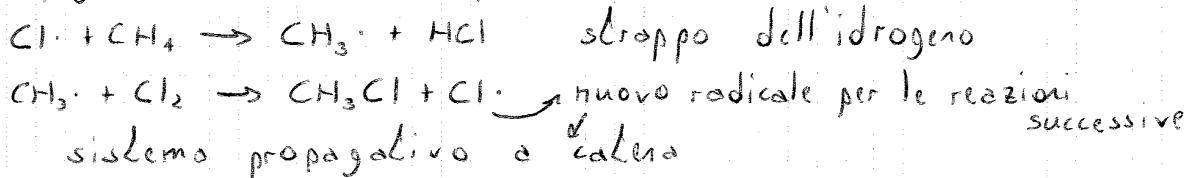 Cl· + CH₄ → CH₃· + HCl strappo dell'idrogeno
CH₃· + Cl₂ → CH₃Cl + Cl· → nuovo radicale per le reazioni
successive
sistema propagativo a catena